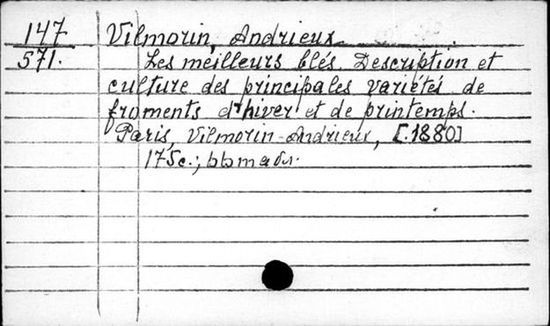 147 Vilmorin, Andrieux
571. Les meilleurs blés. Description et
culture des principales variétés de
froments d'hiver et de printemps.
Paris, Vilmorin-Andrieux, [1880]
175c.;